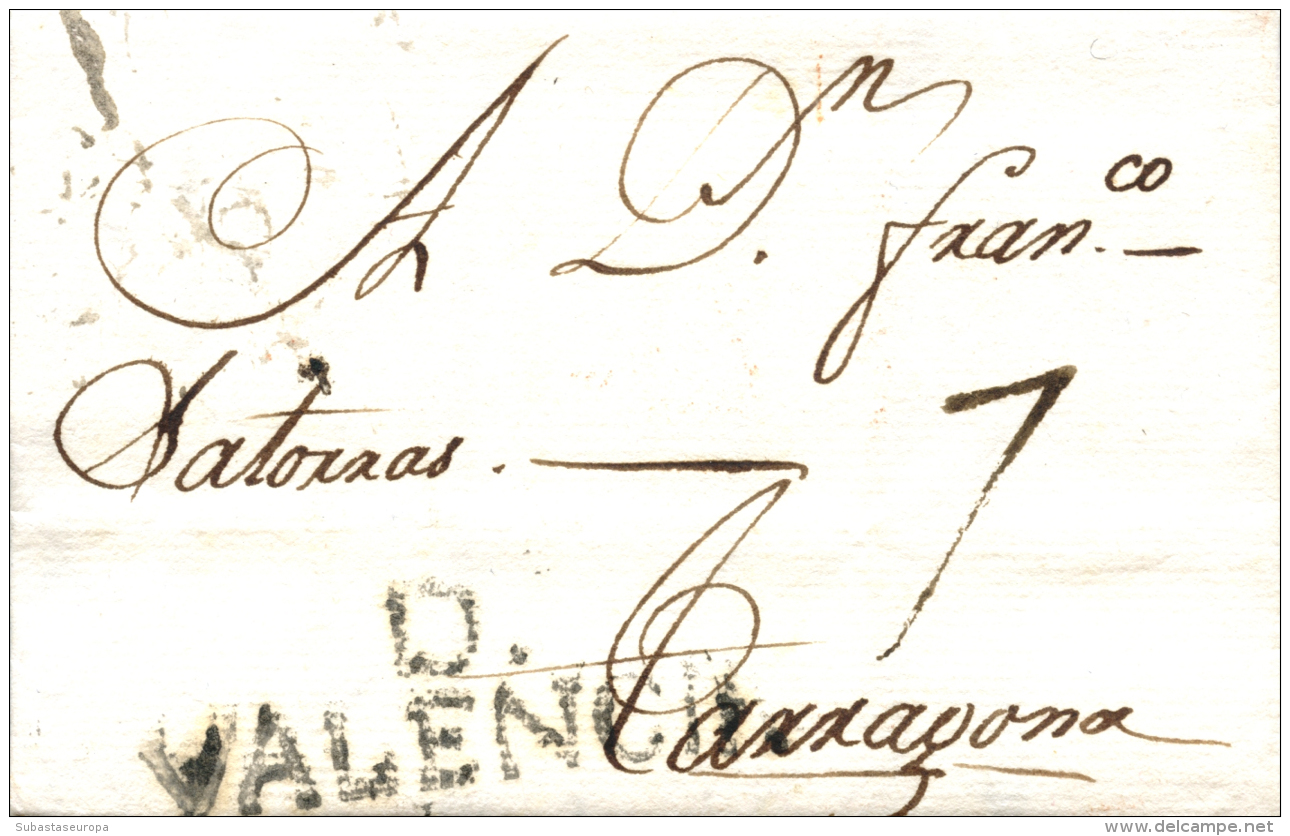 A D.ⁿ Fran.ᶜᵒ
Satorras.
7
D.
VALENCIA
Tarragona
Subastaseuropa
www.delcampe.net